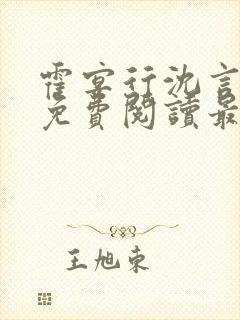 霍宴行沈言
免費閱讀最
王旭東